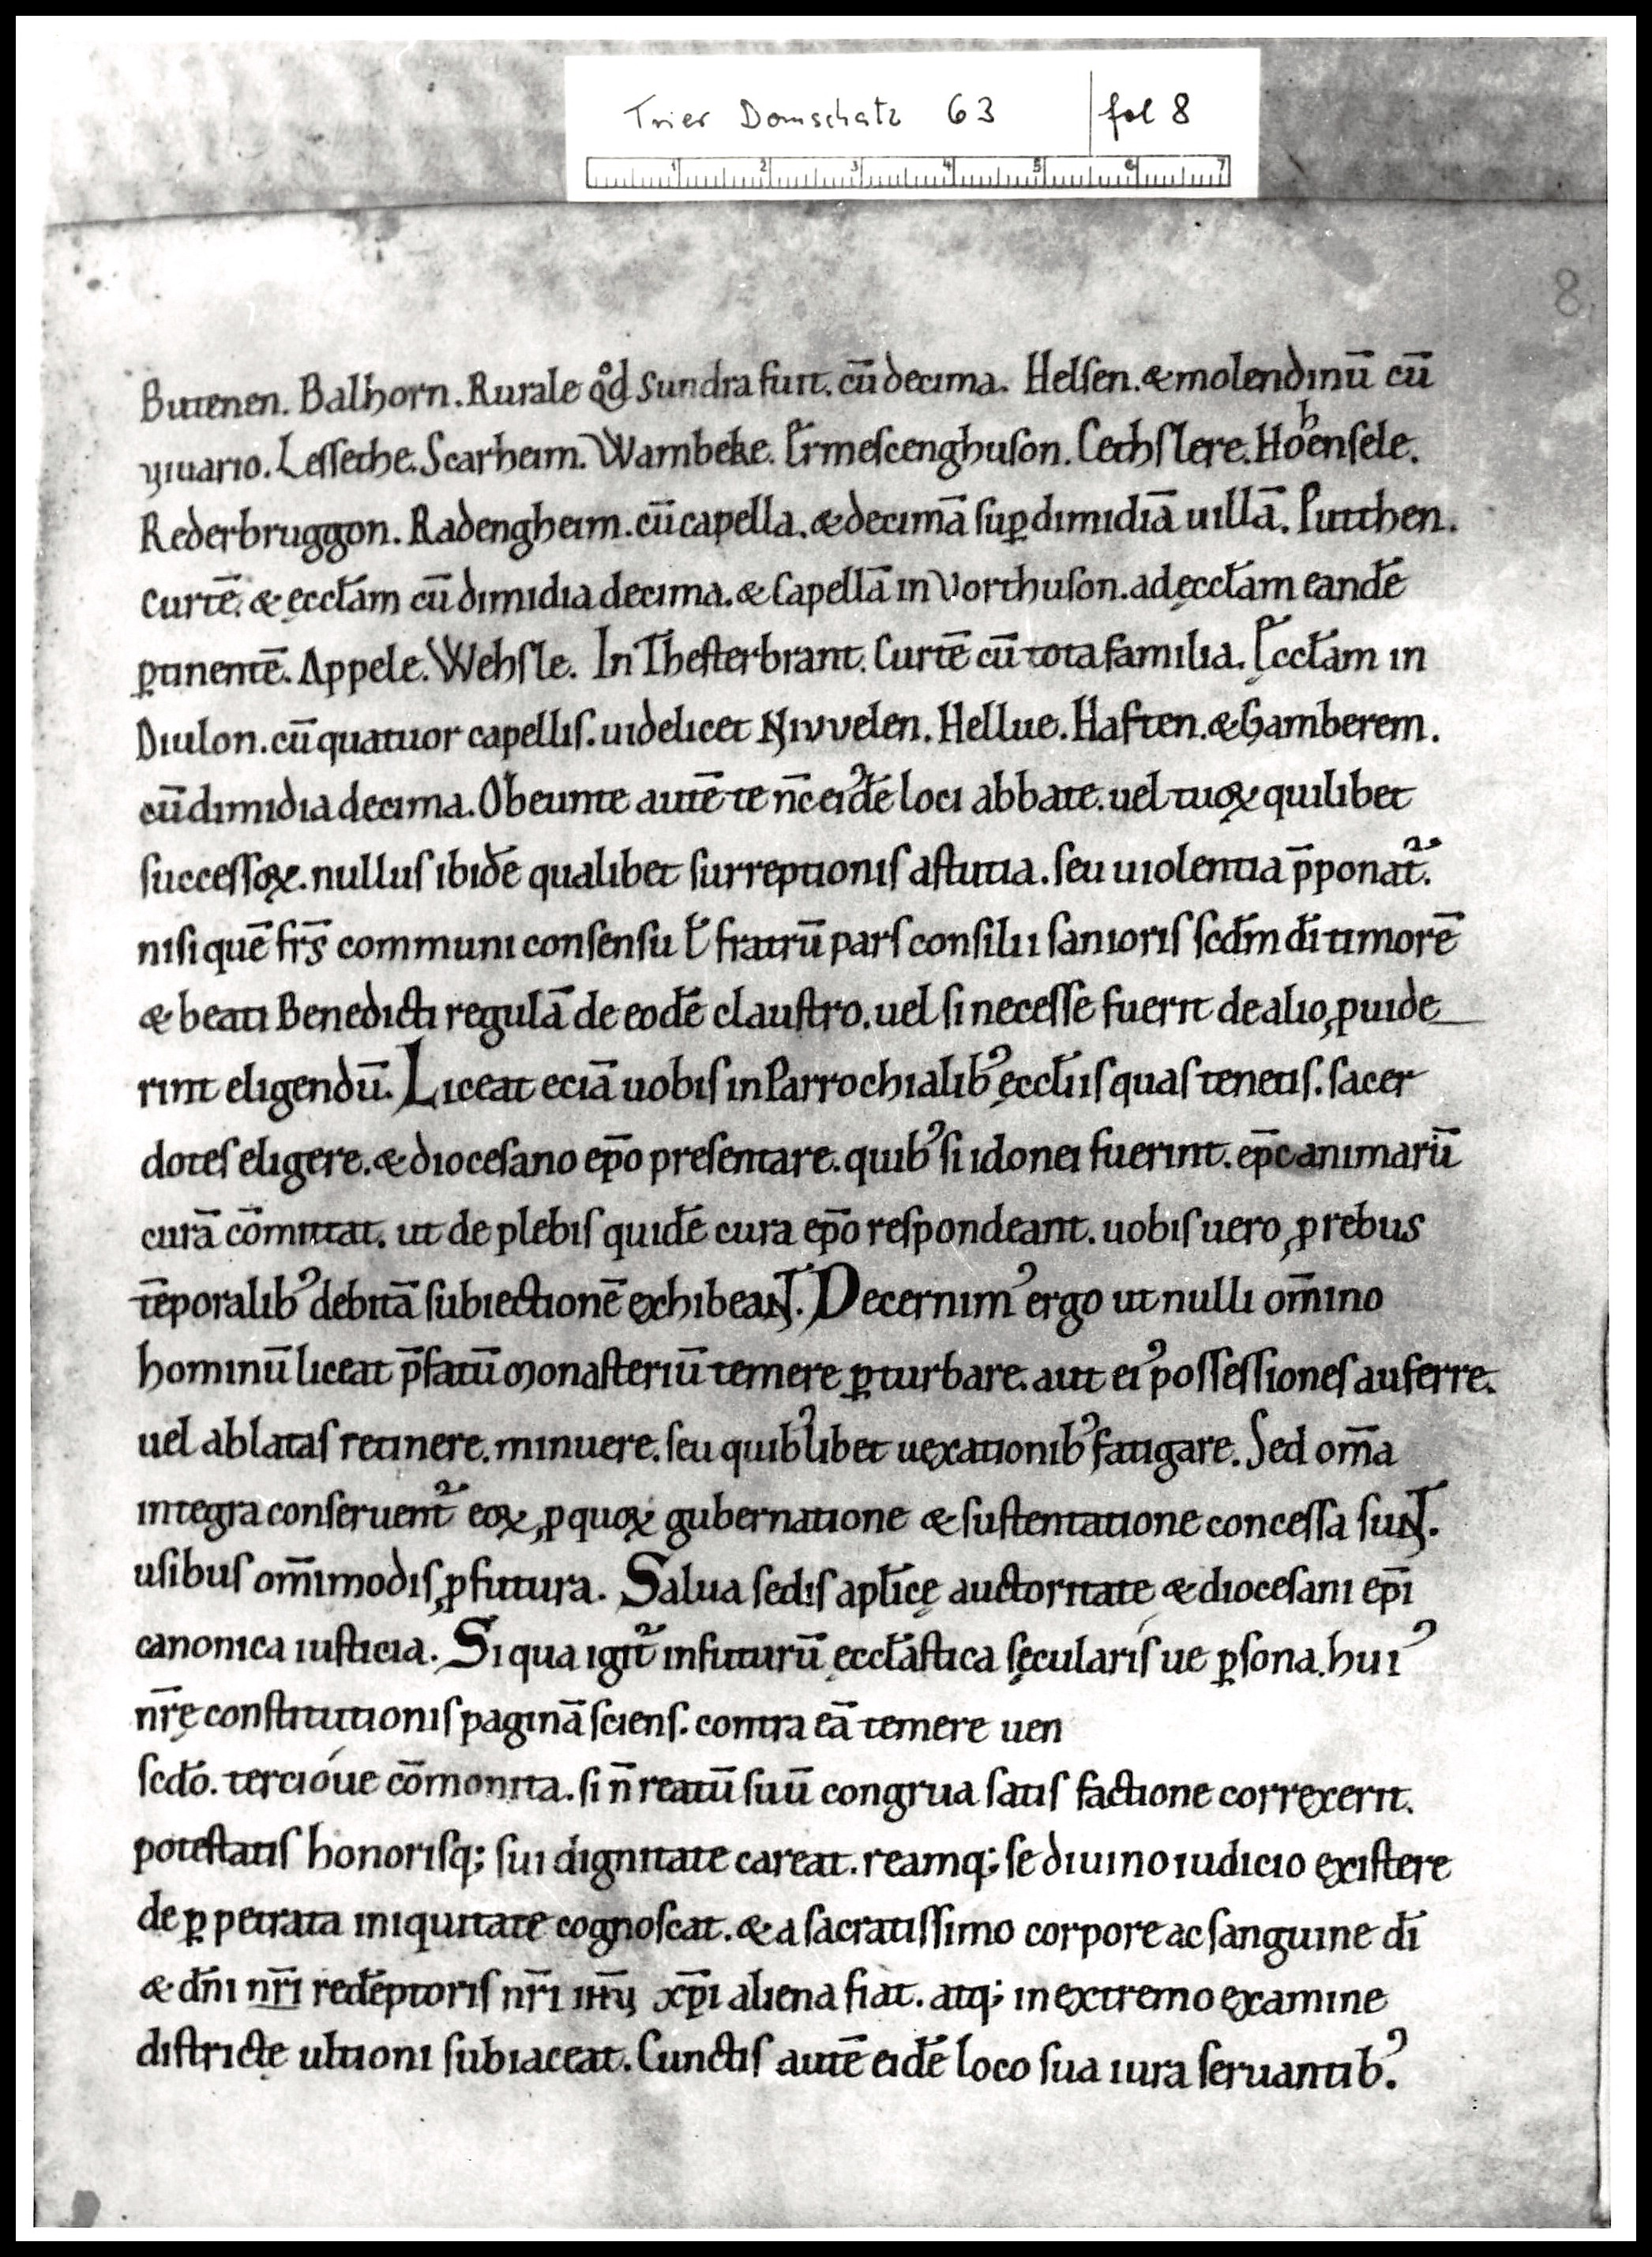 Trier Domschatz 63 fol 8
1 2 3 4 5 6 7
8
Butenen. Balhorn. Rurale qd̊ Sundra fuit. cū decima. Helsen. & molendinū cū
uiuario. Lessethe. Scarheim. Wambeke. Ermescenghuson. Cechslere. Hobͪensele.
Rederbruggon. Radengheim. cū capella. & decimā suꝑ dimidiā uillā. Putthen.
Curtē. & ęccłam cū dimidia decima. & Capellā in Vorthuson. ad ęccłam eandē
ꝑtinentē. Appele. Wehsle. In Thesterbrant. Curtē cū tota familia. Ęccłam in
Diulon. cū quatuor capellis. uidelicet Nivvelen. Hellue. Haften. & Gamberem.
cū dimidia decima. Obeunte autē te nc̄ ei᾽dē loci abbate. uel tuoꝝ quilibet
successoꝝ. nullus ibidē qualibet surreptionis astutia. seu uiolentia p̄ponat᷑.
nisi quē fr̄s communi consensu ł fratrū pars consilii sanioris scd̄m dī timorē
& beati Benedicti regulā de eodē claustro. uel si necesse fuerit de alio ꝓuide
rint eligendū. Liceat eciā uobis in Parrochialib᾽ ęccłiis quas tenetis. sacer
dotes eligere. & diocesano ep̄o presentare. quib᾽ si idonei fuerint. ep̄c animarū
curā cōmittat. ut de plebis quidē cura ep̄o respondeant. uobis uero ꝓ rebus
tēporalib᾽ debitā subiectionē exhibeant. Decernim᾽ ergo ut nulli om̄ino
hominū liceat p̄fatū monasteriū temere ꝑturbare. aut ei᾽ possessiones auferre.
uel ablatas retinere. minuere. seu quib᾽libet uexationib᾽ fatigare. Sed om̄a
integra conseruent᷑ eoꝝ ꝓ quoꝝ gubernatione & sustentatione concessa sunt.
usibus om̄imodis ꝓfutura. Salua sedis apłicę auctoritate & diocesani ep̄i
canonica iusticia. Si qua igit᷑ in futurū ęccłastica sęcularis ue ꝑsona. hui᾽
nr̄ę constitutionis paginā sciens. contra eā temere uen
scd̄o. tercioue cōmonita. si n̄ reatū suū congrua satis factione correxerit.
potestatis honorisq; sui dignitate careat. reamq; se diuino iudicio existere
de ꝑpetrata iniquitate cognoscat. & a sacratissimo corpore ac sanguine dī
& dn̄i nr̄i redēptoris nr̄i xp̄i aliena fiat. atq; in extremo examine
districtę ultioni subiaceat. Cunctis autē eidē loco sua iura seruantib᾽.